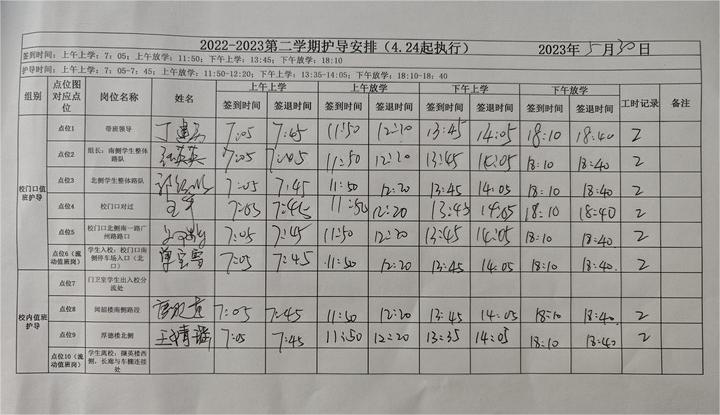 2022-2023第二学期护导安排（4.24起执行） 2023年 5 月 30 日
签到时间：上午上学：7：05；上午放学：11:50；下午上学：13:45；下午放学：18:10
护导时间：上午上学：7：05-7：45；上午放学：11:50-12:20；下午上学：13:35-14:05；下午放学：18:10-18：40
组别 点位图对应点位 岗位名称 姓名 上午上学 上午放学 下午上学 下午放学 工时记录 备注
签到时间 签退时间 签到时间 签退时间 签到时间 签退时间 签到时间 签退时间
校门口值班护导
点位1 带班领导 7:05 7:45 11:50 12:20 13:45 14:05 18:10 18:40 2
点位2 组长：南侧学生整体路队 英英 7:05 11:50 12:20 13:45 14:05 18:10 18:40 2
点位3 北侧学生整体路队 7:05 7:45 11:50 12:20 13:45 14:05 18:10 18:40 2
点位4 校门口对过 7:05 7:45 11:50 12:20 13:45 14:05 18:10 18:40 2
点位5 校门口北侧南一路广州路路口 7:05 7:45 11:50 12:20 13:45 14:05 18:10 18:40 2
点位6（流动值班岗） 学生入校：校门口南侧停车场入口（北口） 7:05 7:45 11:50 12:20 13:45 14:05 18:10 18:40 2
校内值班护导
点位7 门卫室学生出入校分流处
点位8 闻韶楼南侧路段 7:05 7:45 11:50 12:20 13:45 14:05 18:10 18:40 2
点位9 厚德楼北侧 7:05 7:45 11:50 12:20 13:35 14:05 18:10 18:40 2
点位10（流动值班岗） 学生离校：撷英楼西侧，长廊与车棚连接处